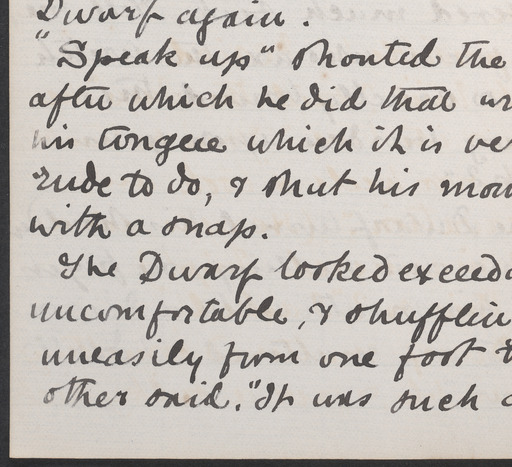 Dwarf again.
"Speak up" shouted the
after which he did that
his tongue which it is
rude to do, & shut his
with a snap.
The Dwarf looked
uncomfortable, &
uneasily from one foot
other said. "It was such